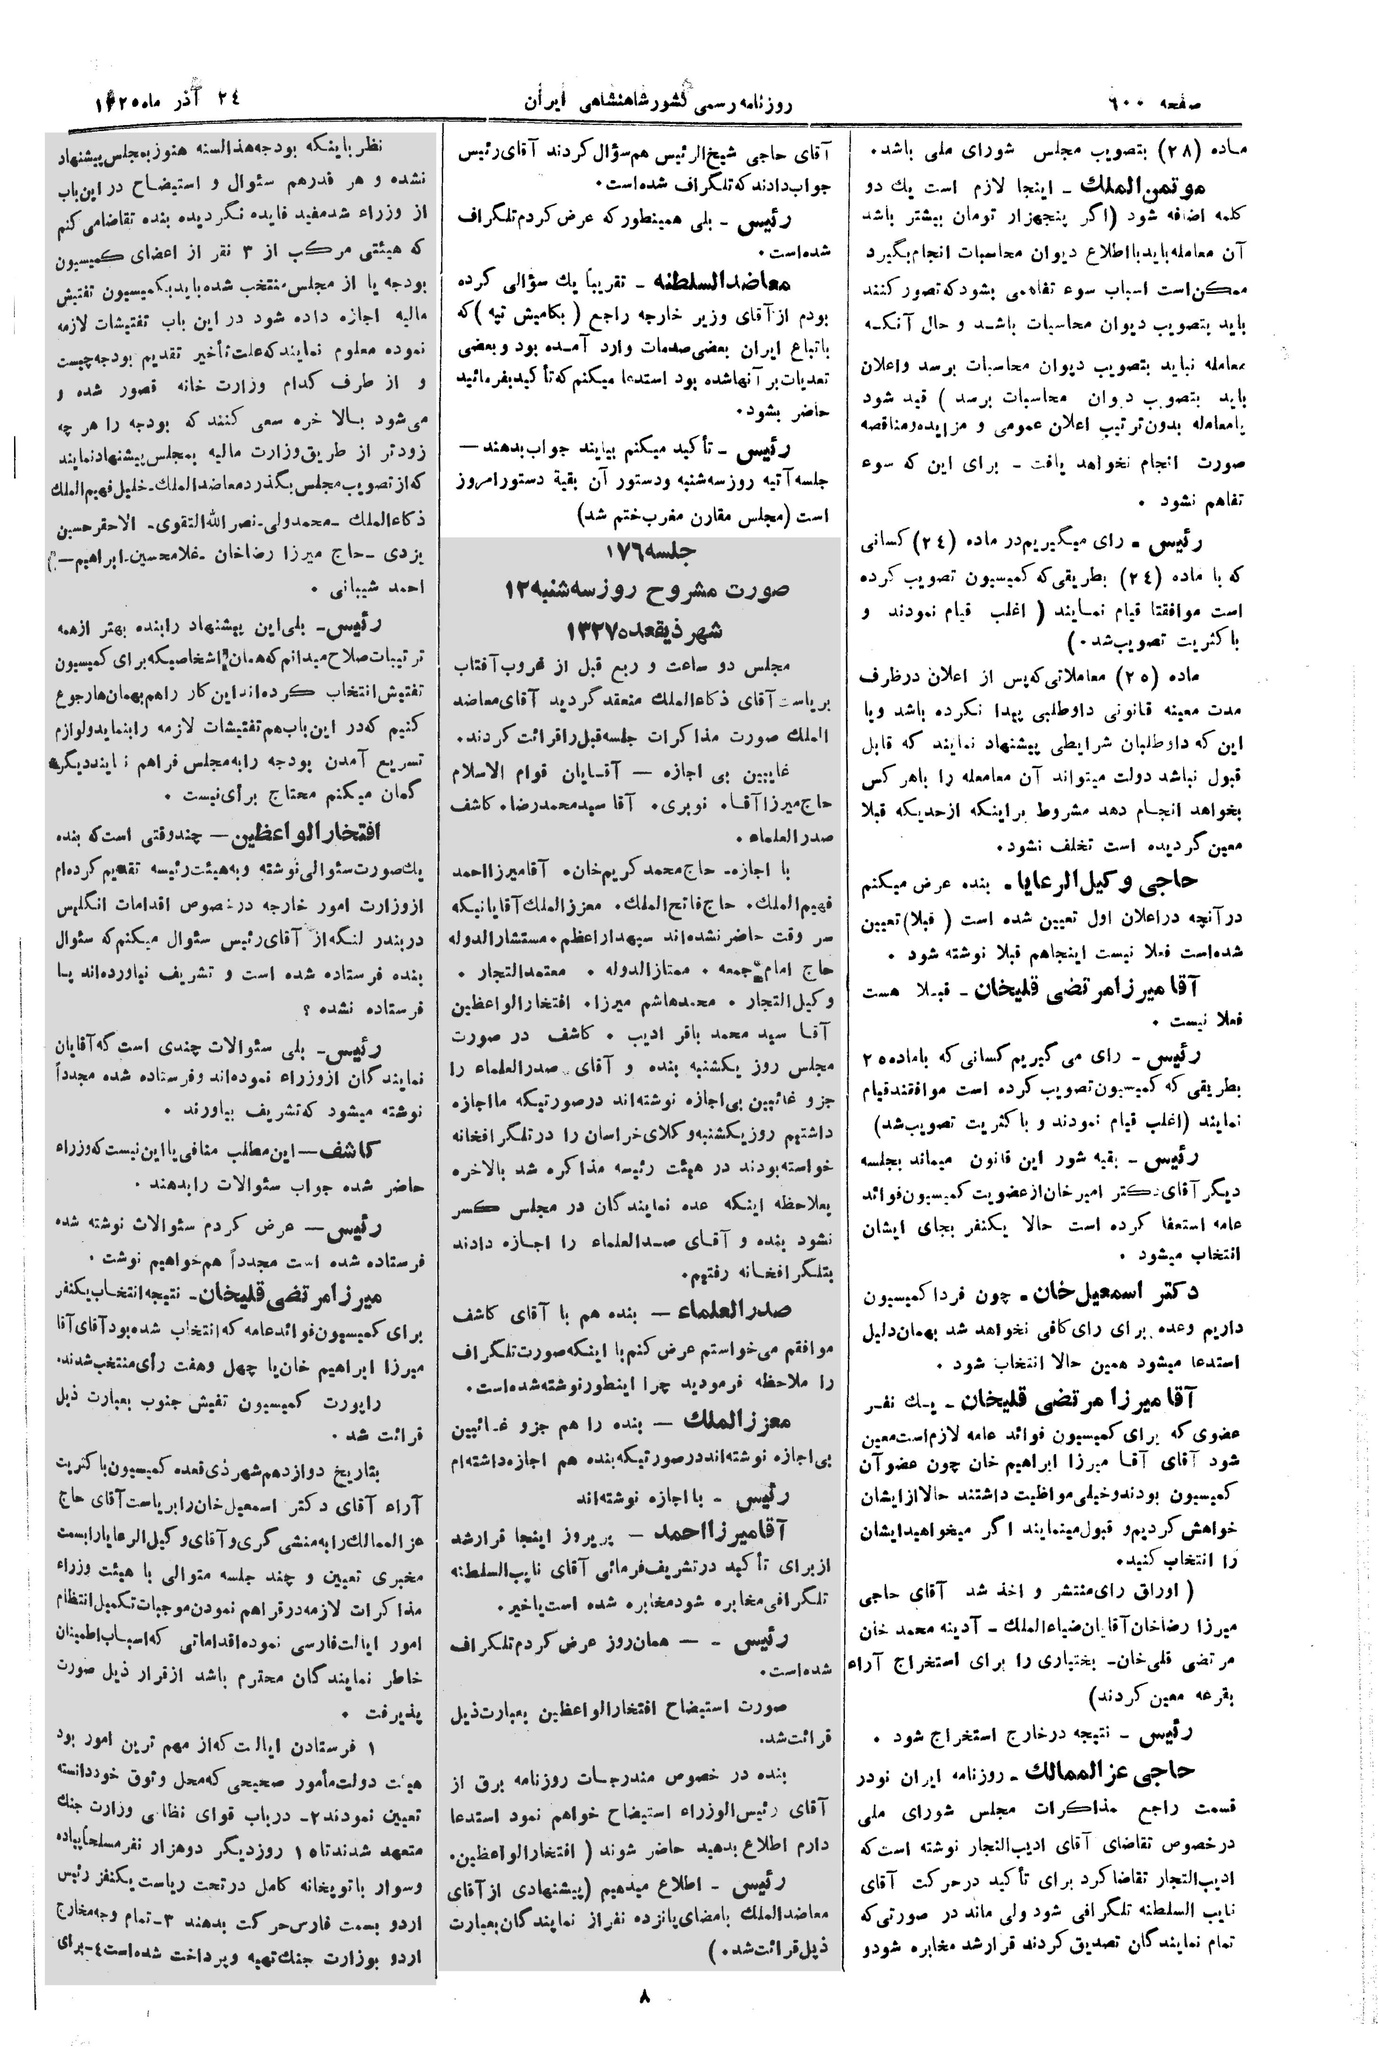 صفحه ۶۰۰
روزنامه رسمی کشور شاهنشاهی ایران
۲۴ آذر ماه ۱۳۲۵
ماده (۲۸) بتصویب مجلس شورای ملی باشد.
موتمن الملك ـ اینجا لازم است یك دو
کلمه اضافه شود (اگر پنجهزار تومان بیشتر باشد
آن معامله باید با اطلاع دیوان محاسبات انجام بگیرد
ممکن است اسباب سوء تفاهمی بشود که تصور کنند
باید بتصویب دیوان محاسبات باشد و حال آنکه
معامله نباید بتصویب دیوان محاسبات برسد و اعلان
باید بتصوب دیوان محاسبات برسد) قید شود
یا معامله بدون ترتیب اعلان عمومی و مزایده و مناقصه
صورت انجام نخواهد یافت ـ برای این که سوء
تفاهم نشود .
رئیس ـ رای میگیریم در ماده (۲۴) کسانی
که با ماده (۲۴) بطریقی که کمیسیون تصویب کرده
است موافقتا قیام نمایند ( اغلب قیام نمودند و
با کثریت تصویب شد )
ماده (۲۵) معاملاتی که پس از اعلان در ظرف
مدت معینه قانونی داوطلبی پیدا نکرده باشد و یا
این که داوطلبان شرایطی پیشنهاد نمایند که قابل
قبول نباشد دولت میتواند آن معامعله را باهر کس
بخواهد انجام دهد مشروط براینکه از حدیکه قبلا
معین گردیده است تخلف نشود.
حاجی وکیل الرعایا ـ بنده عرض میکنم
در آنچه در اعلان اول تعیین شده است ( قبلا) تعیین
شده است فعلا نیست اینجا هم قبلا نوشته شود .
آقا میرزا مرتضی قلیخان ـ قبلا هست
فعلا نیست .
رئیس ـ رای می گیریم کسانی که با ماده ۲۵
بطریقی که کمیسیون تصویب کرده است موافقند قیام
نمایند (اغلب قیام نمودند و با کثریت تصویب شد)
رئیس ـ بقیه شور این قانون میماند بجلسه
دیگر آقای دکتر امیر خان از عضویت کمیسیون فوائد
عامه استعفا کرده است حالا یکنفر بجای ایشان
انتخاب میشود .
دکتر اسمعیل خان ـ چون فردا کمیسیون
داریم وعده برای رای کافی نخواهد شد بهمان دلیل
استدعا میشود همین حالا انتخاب شود .
آقا میرزا مرتضی قلیخان ـ یك نفر
عضوی که برای کمیسیون فوائد عامه لازم است معین
شود آقای آقا میرزا ابراهیم خان چون عضو آن
کمیسیون بودند و خیلی مواظبت داشتند حالا از ایشان
خواهش کردیم و قبول مینمایند اگر میخواهید ایشان
را انتخاب کنید.
( اوراق رای منتشر و اخذ شد آقای حاجی
میرزا رضاخان آقایان ضیاء الملك ـ آدینه محمد خان
مرتضی قلی خان ـ بختیاری را برای استخراج آراء
بقرعه معین کردند)
رئیس ـ نتیجه در خارج استخراج شود .
حاجی عز الممالك ـ روزنامه ایران نو در
قسمت راجع مذاکرات مجلس شورای ملی
در خصوص تقاضای آقای ادیب التجار نوشته است که
ادیب التجار تقاضا کرد برای تأکید در حرکت آقای
نایب السلطنه تلگرافی شود ولی ماند در صورتی که
تمام نمایندگان تصدیق کردند قرار شد مخابره شود و
آقای حاجی شیخ الرئیس هم سؤال کردند آقای رئیس
جواب دادند که تلگراف شده است.
رئیس ـ بلی همینطور که عرض کردم تلگراف
شده است.
معاضد السلطنه ـ تقریباً یك سؤالی کرده
بودم از آقای وزیر خارجه راجع (بکامیش تپه) که
باتباع ایران بعضی صدمات وارد آمده بود و بعضی
تعدیات بر آنها شده بود استدعا میکنم که تأکید بفرمائید
حاضر بشود.
رئیس ـ تأکید میکنم بیایند جواب بدهند —
جلسه آتیه روز سه شنبه و دستور آن بقیة دستور امروز
است (مجلس مقارن مغرب ختم شد)
جلسه ۱۷۶
صورت مشروح روز سه شنبه ۱۲
شهر ذیقعده ۱۳۲۷
مجلس دو ساعت و ربع قبل از غروب آفتاب
بریاست آقای ذکاء الملك منعقد گردید آقای معاضد
الملك صورت مذاکرات جلسه قبل را قرائت کردند.
غایبین بی اجازه — آقایان قوام الاسلام
حاج میرزا آقا. نوبری. آقا سید محمد رضا. کاشف
صدر العلماء .
با اجازه ـ حاج محمد کریم خان. آقا میرزا احمد
فهیم الملك. حاج فاتح الملك. معزز الملك آقایانیکه
سر وقت حاضر نشده اند سپهدار اعظم . مستشار الدوله
حاج امام جمعه . ممتاز الدوله . معتمد التجار .
وکیل التجار . محمد هاشم میرزا. افتخار الواعظین
آقا سید محمد باقر ادیب . کاشف در صورت
مجلس روز یکشنبه بنده و آقای صدر العلماء را
جزو غائبین بی اجازه نوشته اند در صورتیکه ما اجازه
داشتیم روز یکشنبه و کلای خراسان را در تلگرافخانه
خواسته بودند در هیئت رئیسه مذاکره شد بالاخره
بملاحظه اینکه عده نمایندگان در مجلس کسر
نشود بنده و آقای صدر العلماء را اجازه دادند
بتلگرافخانه رفتیم.
صدر العلماء — بنده هم با آقای کاشف
موافقم می خواستم عرض کنم با اینکه صورت تلگراف
را ملاحظه فرمودید چرا اینطور نوشته شده است.
معزز الملك — بنده را هم جزو غائبین
بی اجازه نوشته اند در صورتیکه بنده هم اجازه داشته ام
رئیس ـ با اجازه نوشته اند
آقا میرزا احمد — پریروز اینجا قرار شد
از برای تأکید در تشریف فرمائی آقای نایب السلطنه
تلگرافی مخابره شود مخابره شده است یا خیر.
رئیس ـ — همان روز عرض کردم تلگراف
شده است.
صورت استیضاح افتخار الواعظین بعبارت ذیل
قرائت شد.
بنده در خصوص مندرجات روزنامه برق از
آقای رئیس الوزراء استیضاح خواهم نمود استدعا
دارم اطلاع بدهید حاضر شوند ( افتخار الواعظین.
رئیس ـ اطلاع میدهیم (پیشنهادی از آقای
معاضد الملك بامضای پانزده نفر از نمایندگان بعبارت
ذیل قرائت شد. )
نظر باینکه بودجه هذا السنه هنوز بمجلس پیشنهاد
نشده و هر قدر هم سئوال و استیضاح در این باب
از وزراء شد مفید فایده نگردیده بنده تقاضا می کنم
که هیئتی مرکب از ۳ نفر از اعضای کمیسیون
بودجه یا از مجلس منتخب شده باید بکمیسیون تفتیش
مالیه اجازه داده شود در این باب تفتیشات لازمه
نموده معلوم نمایند که علت تأخیر تقدیم بودجه چیست
و از طرف کدام وزارت خانه قصور شده و
می شود بالاخره سعی کنند که بودجه را هر چه
زودتر از طریق وزارت مالیه بمجلس پیشنهاد نمایند
که از تصویب مجلس بگذرد معاضد الملك ـ خلیل فهیم الملك
ذکاء الملك ـ محمد ولی ـ نصر الله التقوی ـ الاحقر حسین
یزدی ـ حاج میرزا رضا خان ـ غلامحسین ـ ابراهیم —
احمد شیبانی .
رئیس ـ بلی این پیشنهاد را بنده بهتر از همه
ترتیبات صلاح میدانم که همان اشخاصیکه برای کمیسیون
تفتیش انتخاب کرده اند این کار را هم بهمان ها رجوع
کنیم که در این باب هم تفتیشات لازمه را بنماید و لوازم
تسریع آمدن بودجه را به مجلس فراهم نمایند دیگر
گمان میکنم محتاج برأی نیست .
افتخار الواعظین — چند وقتی است که بنده
یك صورت سئوالی نوشته و به هیئت رئیسه تقدیم کرده ام
از وزارت امور خارجه در خصوص اقدامات انگلیس
در بندر لنگه از آقای رئیس سئوال میکنم که سئوال
بنده فرستاده شده است و تشریف نیاورده اند یا
فرستاده نشده ؟
رئیس ـ بلی سئوالات چندی است که آقایان
نمایندگان از وزراء نموده اند و فرستاده شده مجدداً
نوشته میشود که تشریف بیاورند .
کاشف — این مطلب منافی با این نیست که وزراء
حاضر شده جواب سئوالات را بدهند .
رئیس — عرض کردم سئوالات نوشته شده
فرستاده شده است مجدداً هم خواهیم نوشت .
میرزا مرتضی قلیخان ـ نتیجه انتخاب یکنفر
برای کمیسیون فوائد عامه که انتخاب شده بود آقای آقا
میرزا ابراهیم خان با چهل و هفت رأی منتخب شدند.
راپورت کمیسیون تفیش جنوب بعبارت ذیل
قرائت شد .
بتاریخ دوازدهم شهر ذی قعده کمیسیون با کثریت
آراء آقای دکتر اسمعیل خان را بریاست آقای حاج
عز الممالك را به منشی گری و آقای وکیل الرعایا را بسمت
مخبری تعیین و چند جلسه متوالی با هیئت وزراء
مذاکرات لازمه در فراهم نمودن موجبات تکمیل انتظام
امور ایالت فارسی نموده اقداماتی که اسباب اطمینان
خاطر نمایندگان محترم باشد از قرار ذیل صورت
پذیرفت .
۱ فرستادن ایالت که از مهم ترین امور بود
هیئت دولت مأمور صحیحی که محل وثوق خود دانسته
تعیین نمودند ۲ـ در باب قوای نظامی وزارت جنك
متعهد شدند تا ۱۵ روز دیگر دو هزار نفر مسلحاً پیاده
و سوار با توپخانه کامل در تحت ریاست یکنفر رئیس
اردو بسمت فارس حرکت بدهند ۳ـ تمام وجه مخارج
اردو بوزارت جنك تهیه و پرداخت شده است ۴ـ برای
۸